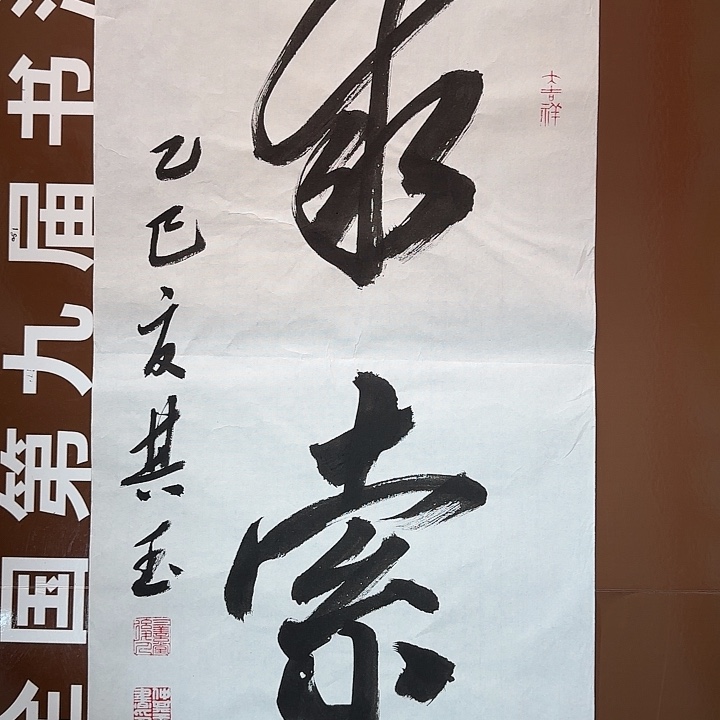 大吉祥
求索
乙巳夏其玉
全国第九届书法